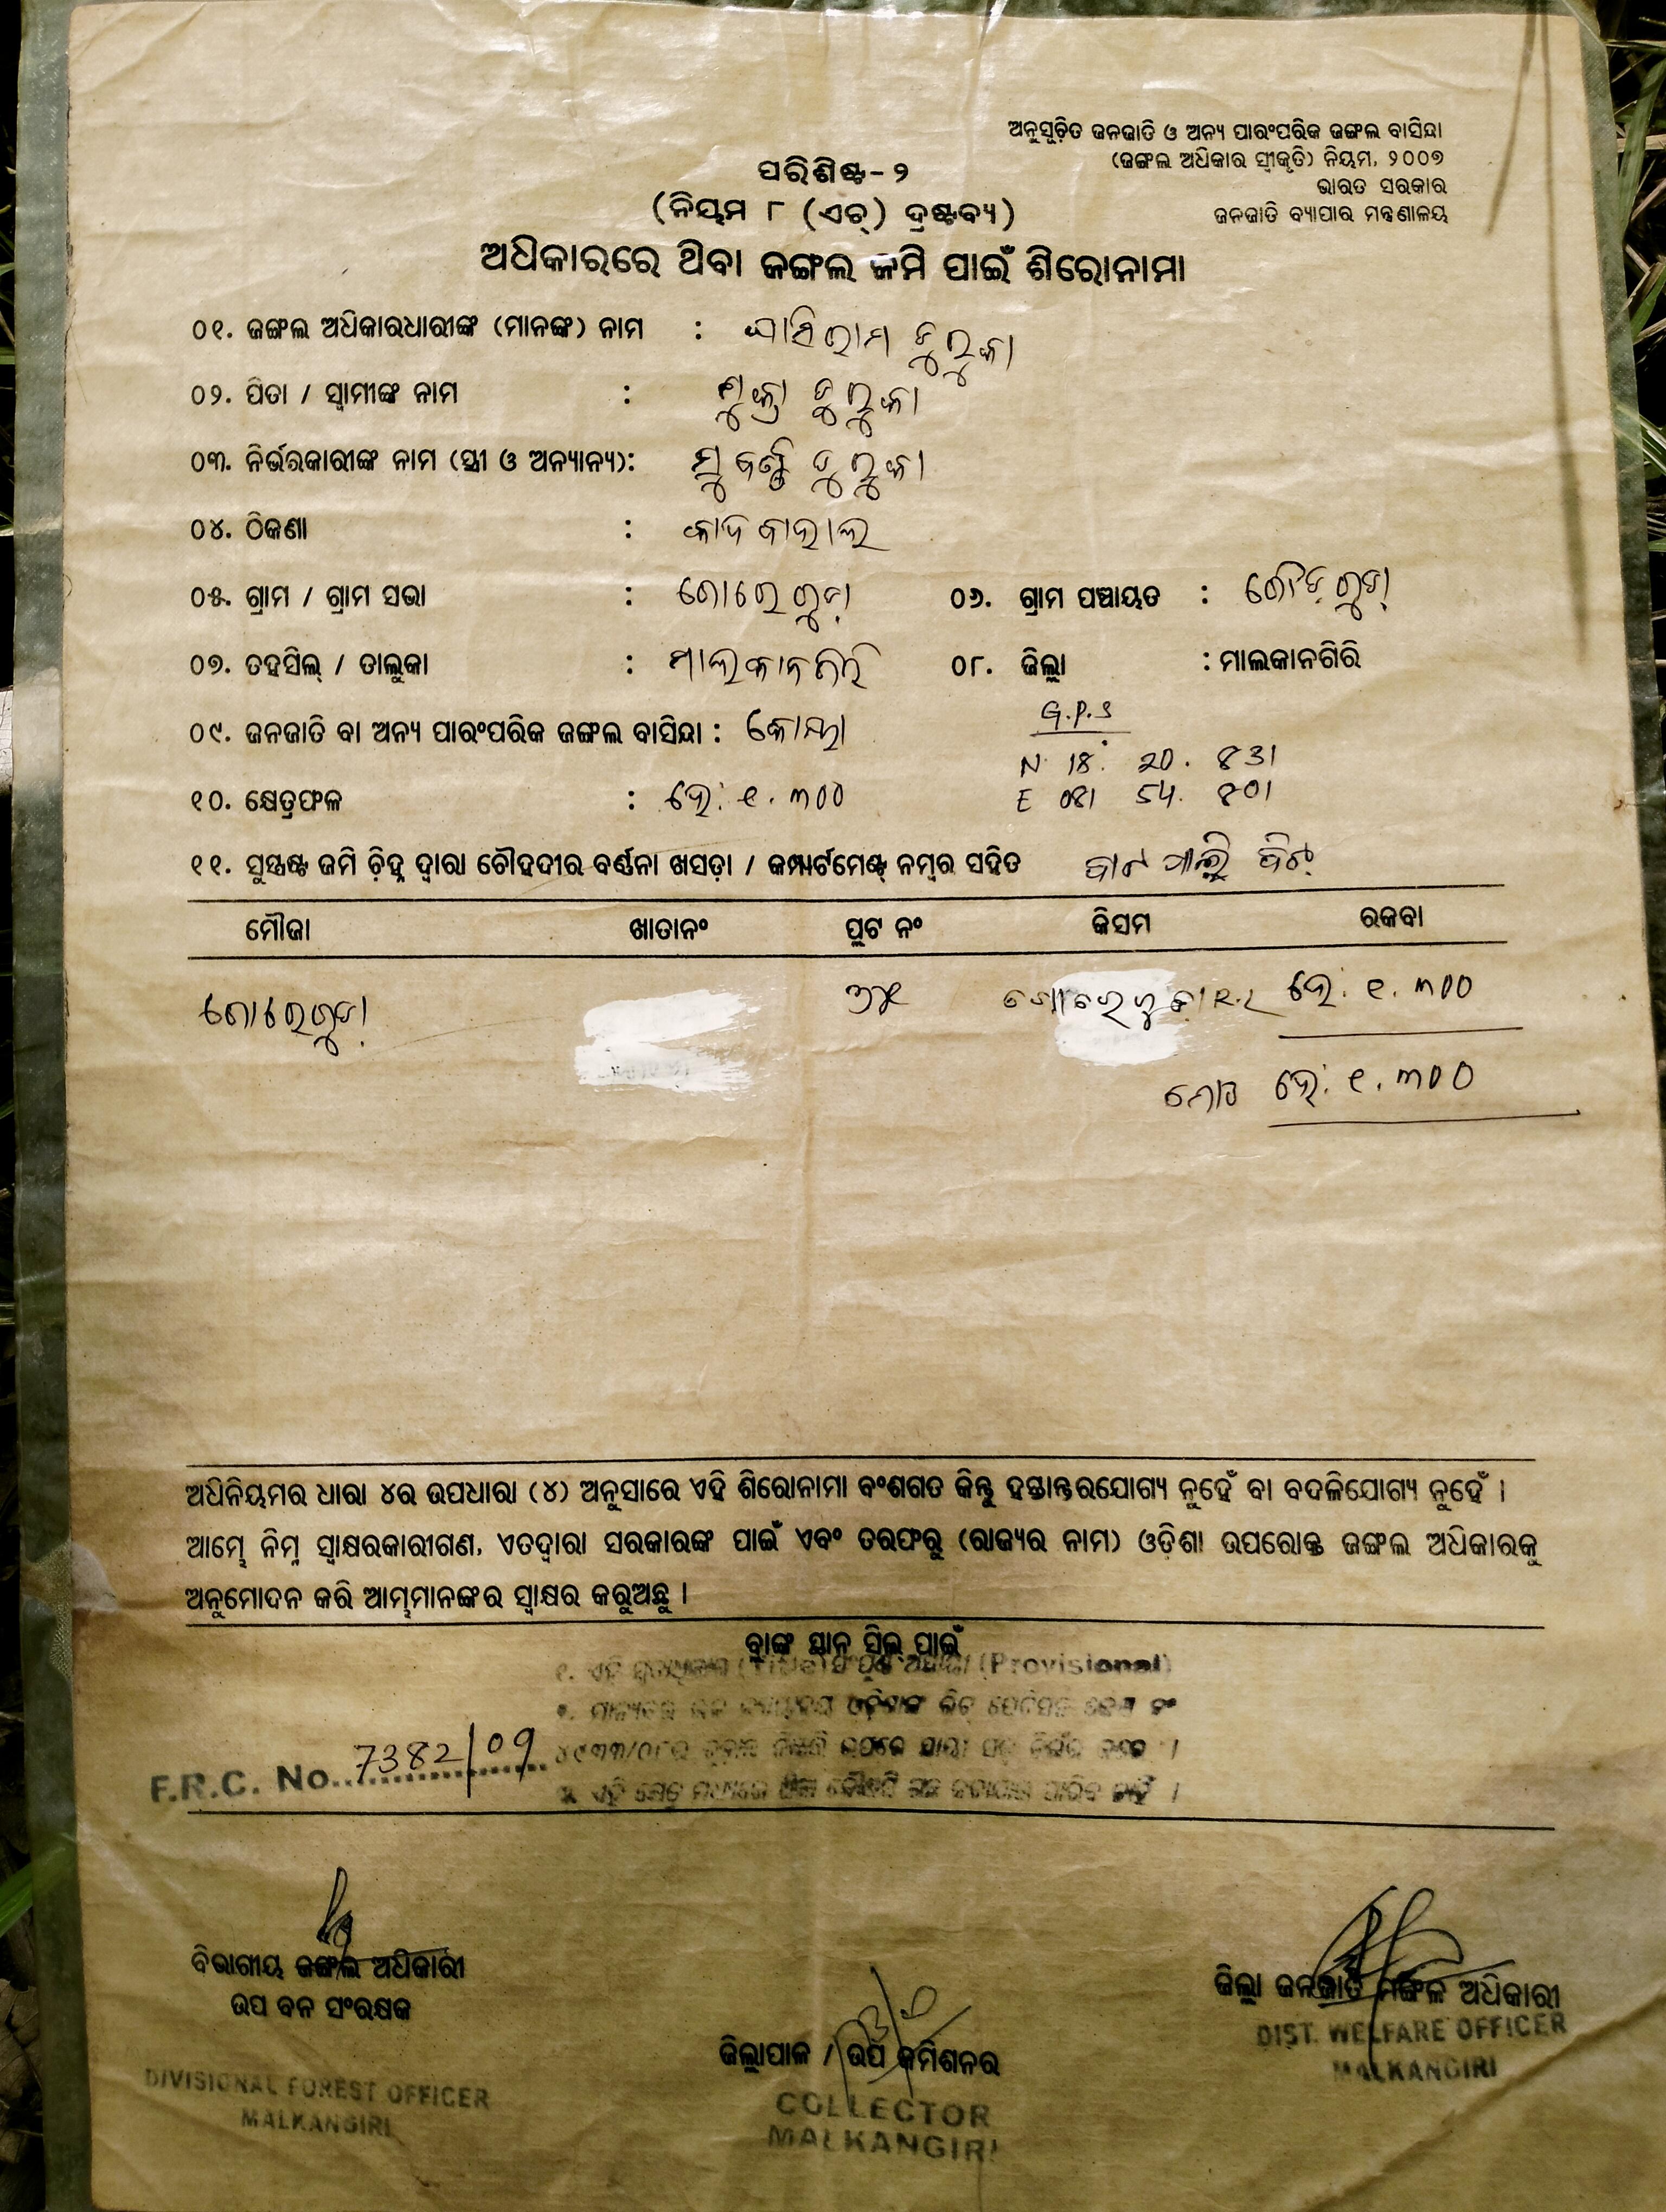 ଅନୁସୂଚିତ ଜନଜାତି ଓ ଅନ୍ୟ ପାରଂପରିକ ଜଙ୍ଗଲ ବାସିନ୍ଦା
(ଜଙ୍ଗଲ ଅଧିକାର ସ୍ୱୀକୃତି) ନିୟମ, ୨୦୦୭
ଭାରତ ସରକାର
ଜନଜାତି ବ୍ୟାପାର ମନ୍ତ୍ରଣାଳୟ
ପରିଶିଷ୍ଟ-୨
(ନିୟମ ୮ (ଏଚ୍) ଦ୍ରଷ୍ଟବ୍ୟ)
ଅଧିକାରରେ ଥିବା ଜଙ୍ଗଲ ଜମି ପାଇଁ ଶିରୋନାମା
୦୧. ଜଙ୍ଗଲ ଅଧିକାରଧାରୀଙ୍କ (ମାନଙ୍କ) ନାମ : ଘାସିରାମ ଦୁରୁକା
୦୨. ପିତା / ସ୍ୱାମୀଙ୍କ ନାମ : ଶୁକ୍ରା ଦୁରୁକା
୦୩. ନିର୍ଭରକାରୀଙ୍କ ନାମ (ସ୍ତ୍ରୀ ଓ ଅନ୍ୟାନ୍ୟ): ଦୁରୁକା
୦୪. ଠିକଣା :
୦୫. ଗ୍ରାମ / ଗ୍ରାମ ସଭା : ୦୬. ଗ୍ରାମ ପଞ୍ଚାୟତ :
୦୭. ତହସିଲ୍ / ତାଲୁକା : ମାଲକାନଗିରି ୦୮. ଜିଲ୍ଲା : ମାଲକାନଗିରି
୦୯. ଜନଜାତି ବା ଅନ୍ୟ ପାରଂପରିକ ଜଙ୍ଗଲ ବାସିନ୍ଦା : କୋୟା
G.P.S
N 18. 20. 831
୧୦. କ୍ଷେତ୍ରଫଳ : ହେ: ୧.୩୦୦ E 081 54. 801
୧୧. ସୁସ୍ପଷ୍ଟ ଜମି ଚିହ୍ନ ଦ୍ୱାରା ଚୌହଦୀର ବର୍ଣ୍ଣନା ଖସଡ଼ା / କମ୍ପାର୍ଟମେଣ୍ଟ୍ ନମ୍ବର ସହିତ
ମୌଜା ଖାତାନଂ ପ୍ଲଟ ନଂ କିସମ ରକବା
ହେ: ୧.୩୦୦
ମୋଟ ହେ: ୧.୩୦୦
ଅଧିନିୟମର ଧାରା ୪ର ଉପଧାରା (୪) ଅନୁସାରେ ଏହି ଶିରୋନାମା ବଂଶଗତ କିନ୍ତୁ ହସ୍ତାନ୍ତରଯୋଗ୍ୟ ନୁହେଁ ବା ବଦଳିଯୋଗ୍ୟ ନୁହେଁ ।
ଆମ୍ଭେ ନିମ୍ନ ସ୍ୱାକ୍ଷରକାରୀଗଣ, ଏତଦ୍ୱାରା ସରକାରଙ୍କ ପାଇଁ ଏବଂ ତରଫରୁ (ରାଜ୍ୟର ନାମ) ଓଡ଼ିଶା ଉପରୋକ୍ତ ଜଙ୍ଗଲ ଅଧିକାରକୁ
ଅନୁମୋଦନ କରି ଆମ୍ଭମାନଙ୍କର ସ୍ୱାକ୍ଷର କରୁଅଛୁ ।
ବ୍ଲାଙ୍କ ସ୍ଥାନ ସିଲ୍ ପାଇଁ
୧. ଏହି (Provisional)
F.R.C. No. 7382/09
ବିଭାଗୀୟ ଜଙ୍ଗଲ ଅଧିକାରୀ
ଉପ ବନ ସଂରକ୍ଷକ
DIVISIONAL FOREST OFFICER
MALKANGIRI
ଜିଲ୍ଲାପାଳ / ଉପ କମିଶନର
COLLECTOR
MALKANGIRI
ଜିଲ୍ଲା ଜନଜାତି ମଙ୍ଗଳ ଅଧିକାରୀ
DIST. WELFARE OFFICER
MALKANGIRI